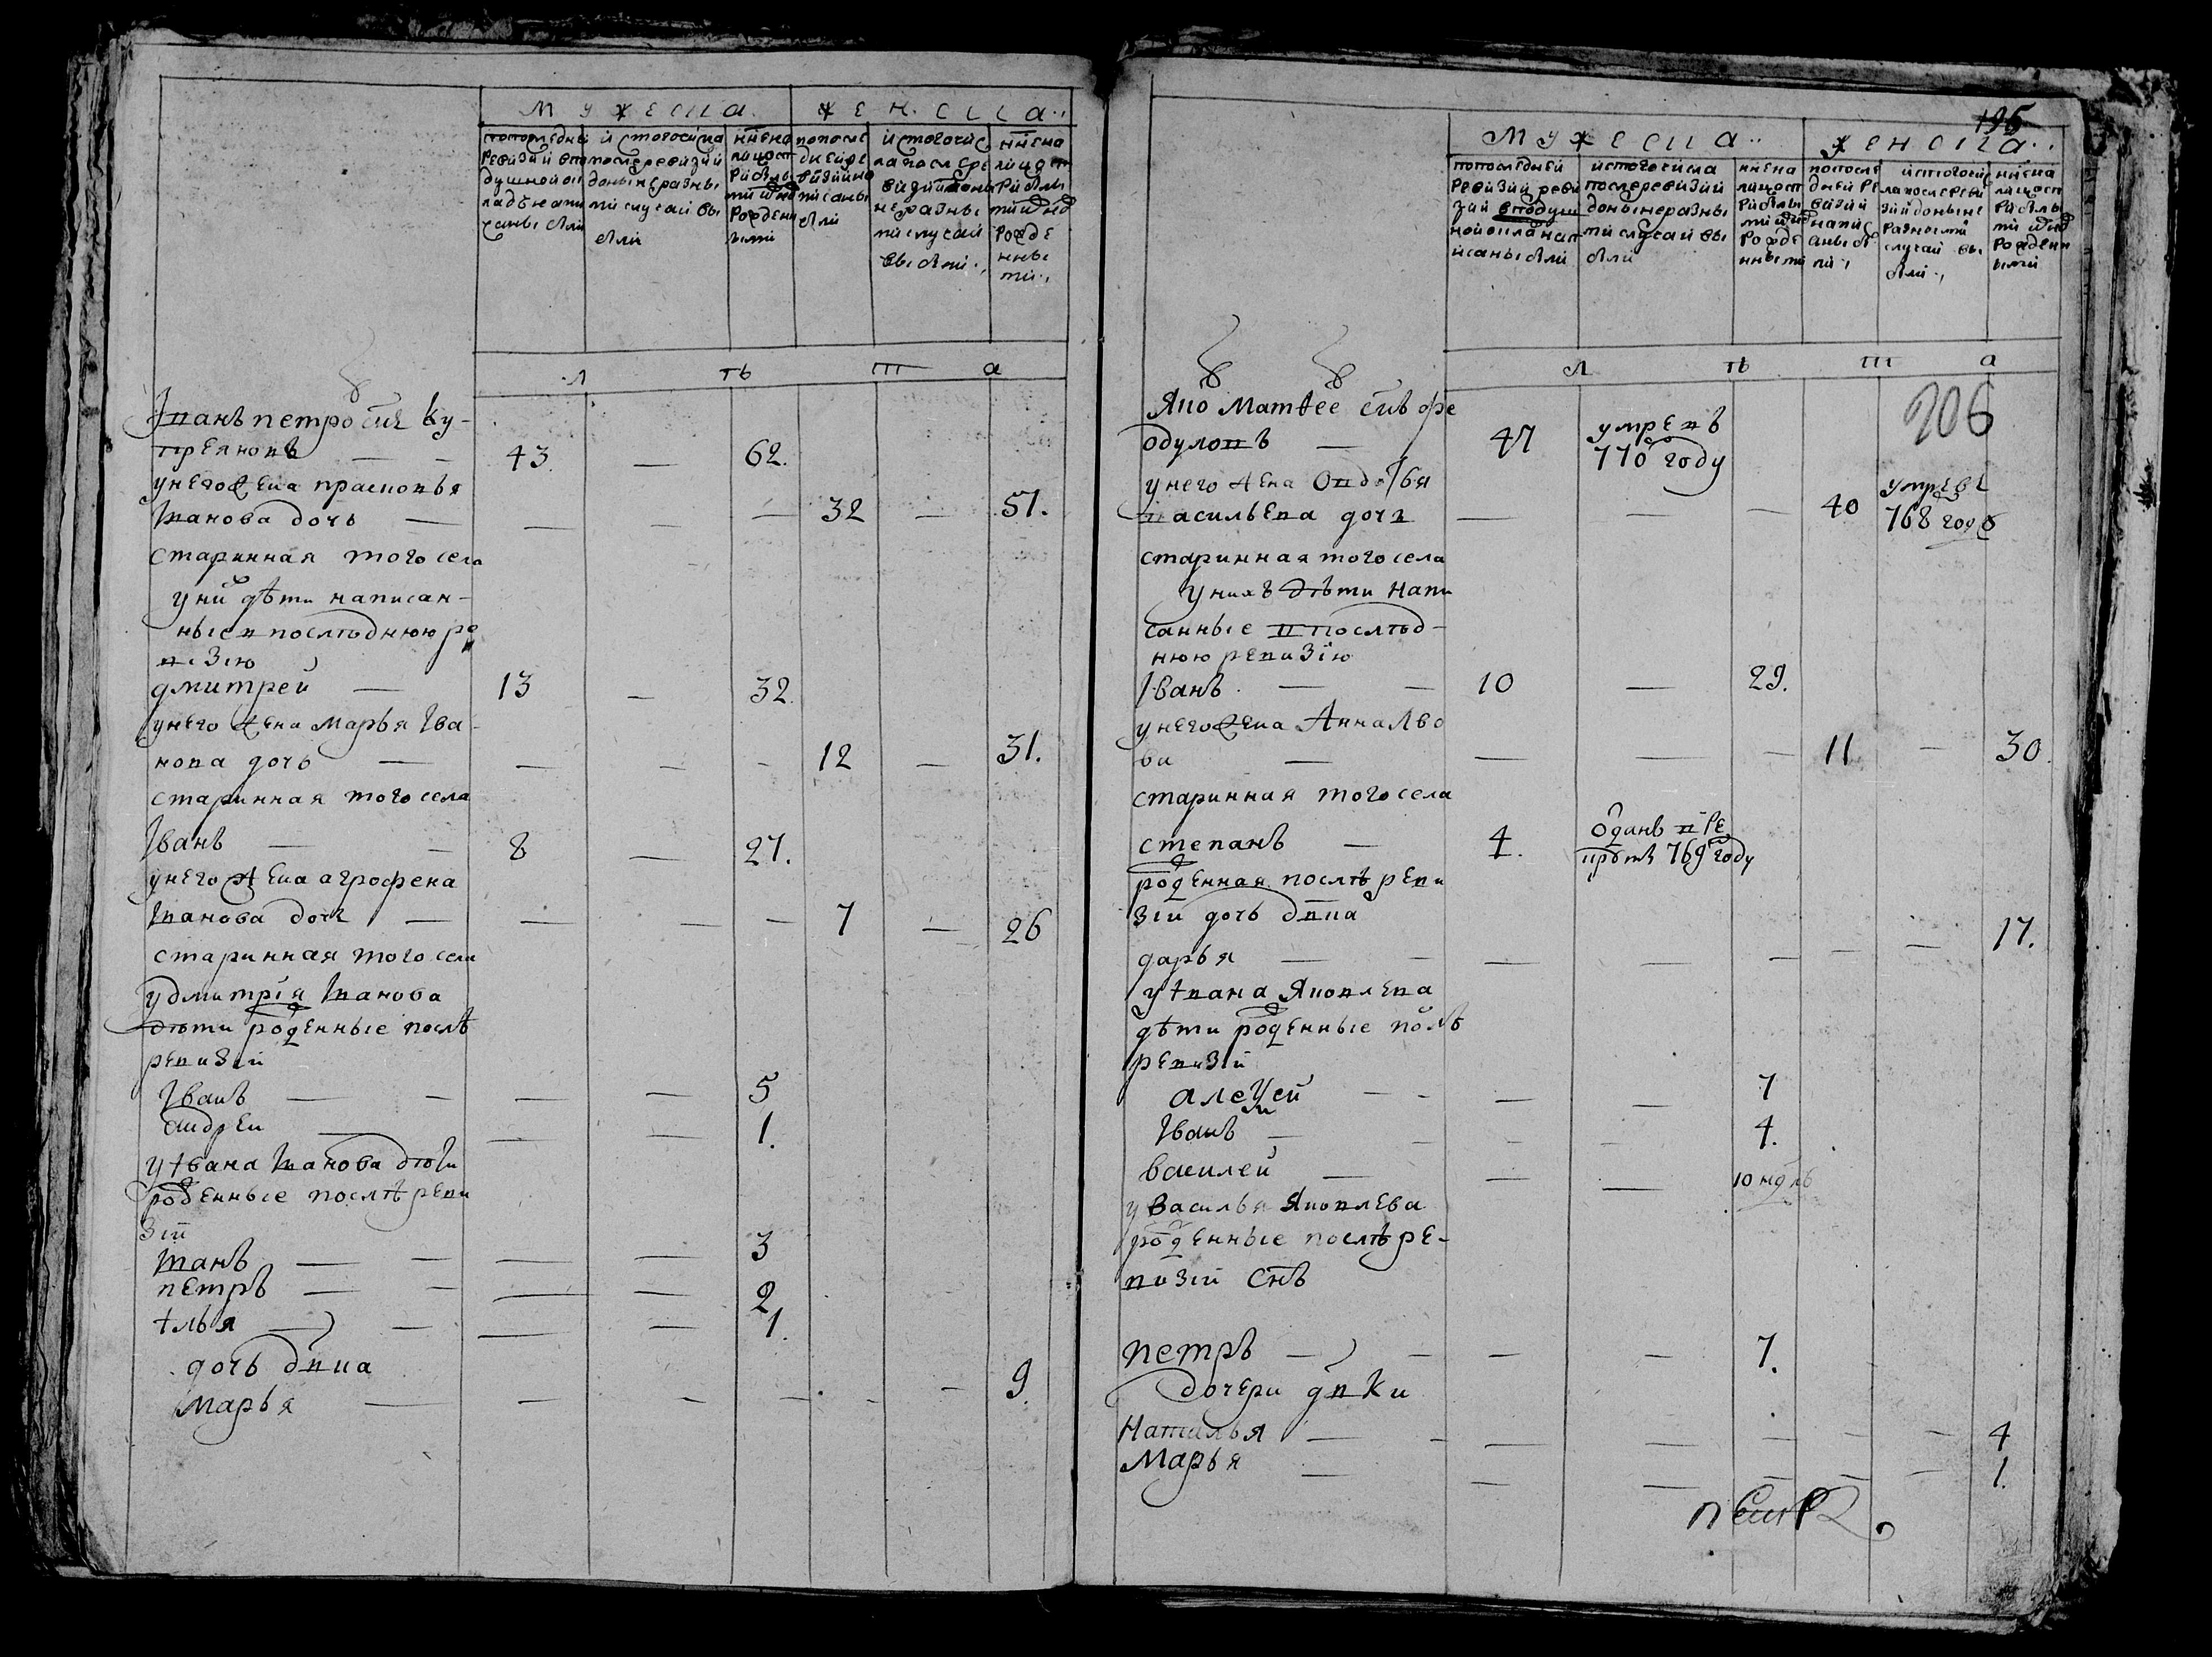 мужеска
женска
попоследней ревизии вподушной оклад написаны были
истого числа после ревизии доныне разными случаи выбыли
ныне налицо с прибылыми и вновь рожденными
попоследней ревизии написаны были
истого числа после ревизии доныне разными случаи выбыли
ныне налицо с прибылыми и вновь рожденными
лѣта
Iванъ петро снъ ку-
преяновъ — — 43. — 62.
унего жена прасковья
Iванова дочь — — — — 32 — 51.
старинная того села
у ни дѣти написан-
ные в послѣднюю ре
визiю
дмитрей — 13 — 32.
унего жена марья Iва-
нова дочь — — — — 12 — 31.
старинная того села
Iванъ — — 8 — 27.
унего жена агрофена
Iванова дочь — — — — 7 — 26
старинная того села
у дмитрiя Iванова
дѣти рожденные послѣ
ревизiи
Iванъ — — — — 5
андреи — — — 1.
у Iвана Iванова дѣти
рожденные послѣ реви
зiи
Iванъ — — — — 3
петръ — — — — 2
Iлья — — — — 1.
дочь двка
марья — — — — — — 9.
195
мужеска
женска
попоследней ревизий вподушной оклад написаны были
истого числа после ревизий доныне разными случаи выбыли
ныне налицо с прибылыми и вновь рожденными
попоследней ревизий написаны были
истого числа после ревизий доныне разными случаи выбыли
ныне налицо с прибылыми и вновь рожденными
лѣта
206
Яко Матвее снъ фе
одуловъ — 47 умревъ 770 году
унего жена Овдотья
васильева дочь — — — 40 умрѣ 768 году
старинная того села
у нихъ дѣти напи
санные в послѣд-
нюю ревизiю
Iванъ — — 10 — 29.
унего жена Анна Лво
ва — — — — 11 — 30.
старинная того села
степанъ — 4. Оданъ в ре
крѣты 769 году
рожденная послѣ реви
зiи дочь двка
дарья — — — — — — — 17.
у Iвана Яковлева
дѣти рожденные полѣ
ревизiи
алеѯеи — — — — 7
Iванъ — — — — 4.
василеи — — — 10 ндль
у Василья Яковлева
рожденные послѣ ре-
визiи снъ
петръ — — — — 7.
дочери двки
Наталья — — — — — — — 4
Марья — — — — — — 1.